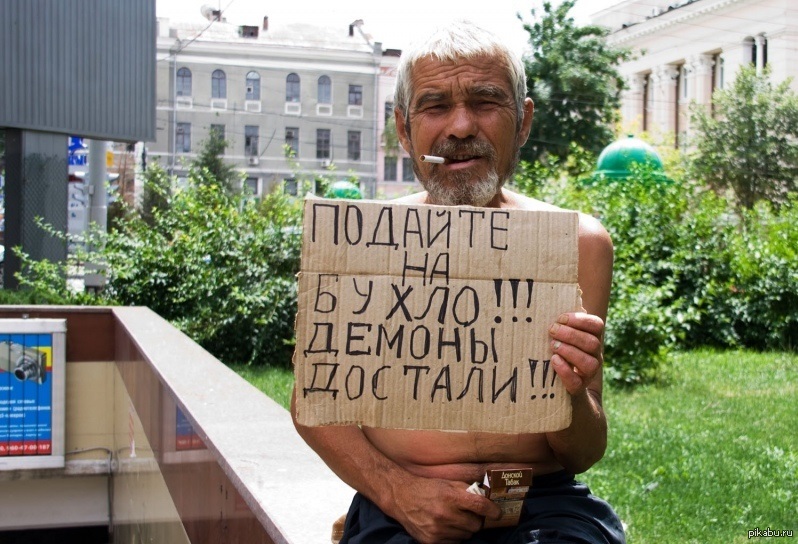 ПОДАЙТЕ
НА
БУХЛО!!!
ДЕМОНЫ
ДОСТАЛИ!!!
Донской
Табак
pikabu.ru